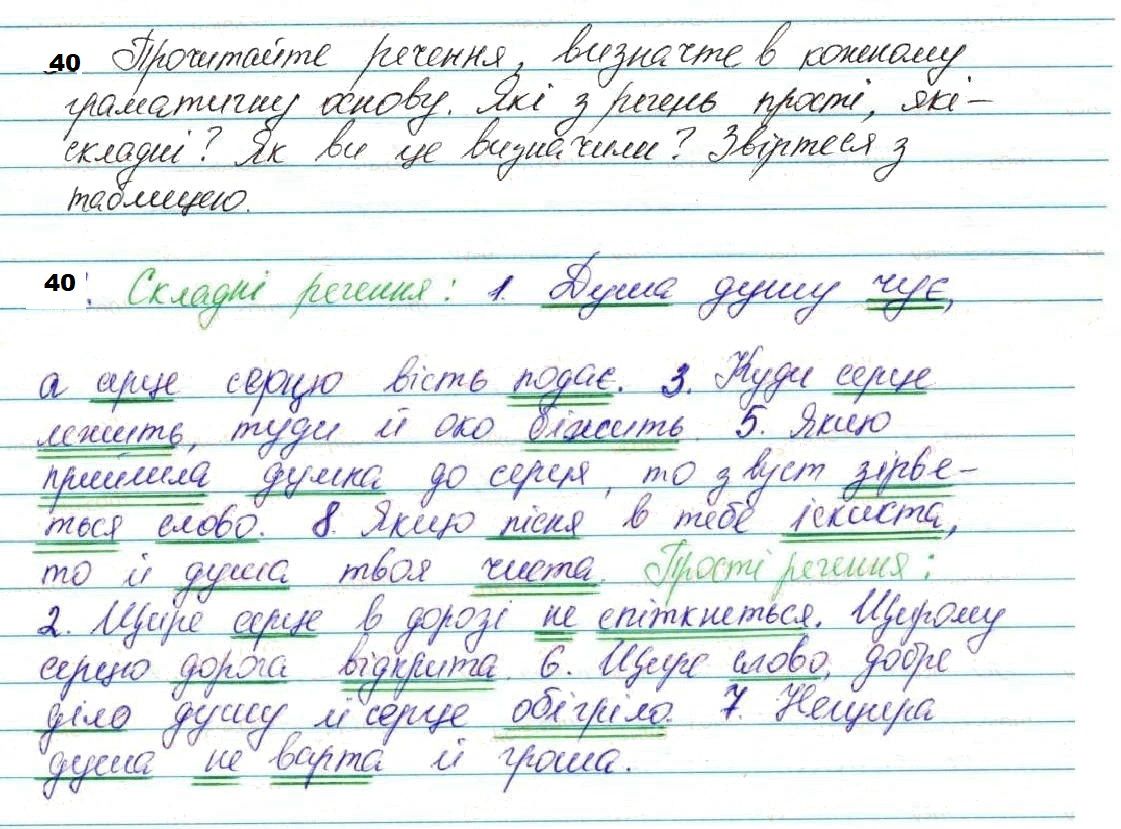 40 Прочитайте речення, визначте в кожному
граматичну основу. Які з речень прості, які –
складні? Як ви це визначили? Звіртеся з
таблицею.
40 . Складні речення: 1. Душа душу чує,
а серце серцю вість подає. 3. Куди серце
лежить, туди й око біжить. 5. Якщо
прийшла думка до серця, то з вуст зірве-
ться слово. 8. Якщо пісня в тебе іскиста,
то й душа твоя чиста. Прості речення:
2. Щире серце в дорозі не спіткнеться. Щирому
серцю дорога відкрита. 6. Щире слово, добре
діло душу й серце обігріло. 7. Нещира
душа не варта й гроша.